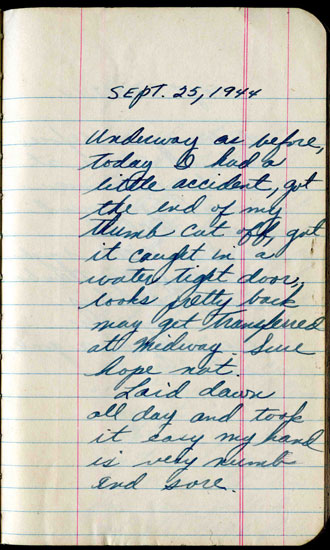 SEPT. 25, 1944
Underway as before,
today I had a
little accident, got
the end of my
thumb cut off, got
it caught in a
water tight door,
looks pretty back
may get transferred
at Midway. Sure
hope not.
Laid down
all day and took
it easy my hand
is very numb
and sore.